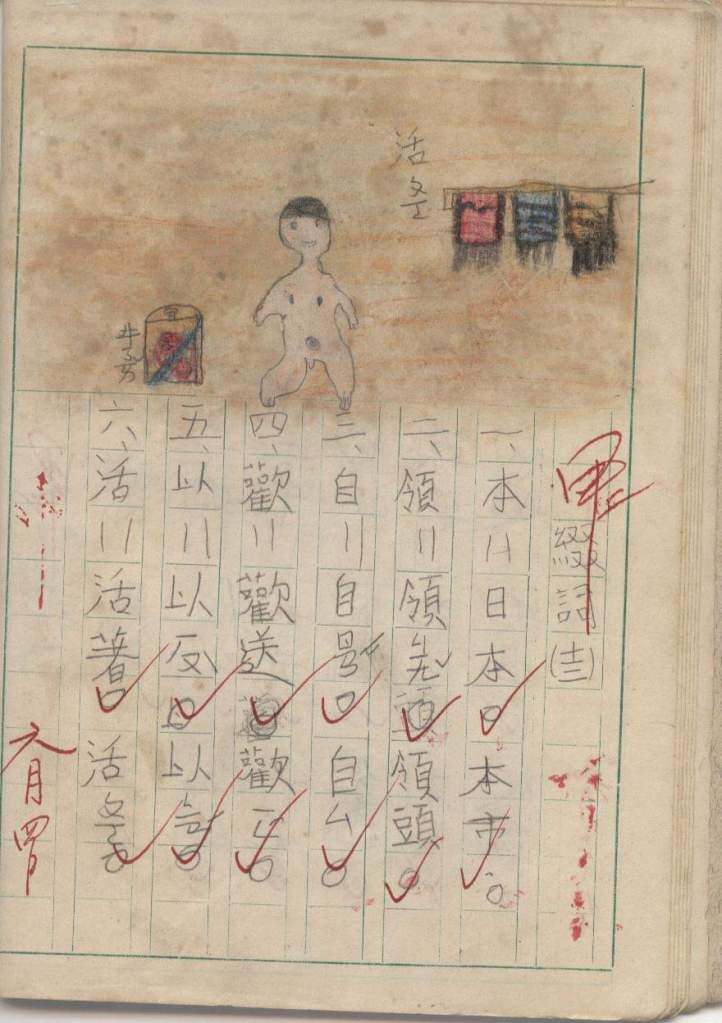 活
甲
綴詞(十三)
一、本||日本。本市。
二、領||領先。領頭。
三、自||自号。自ㄙ。
四、歡||歡送。歡
五、以||以反。以
六、活||活著。活
六月四日